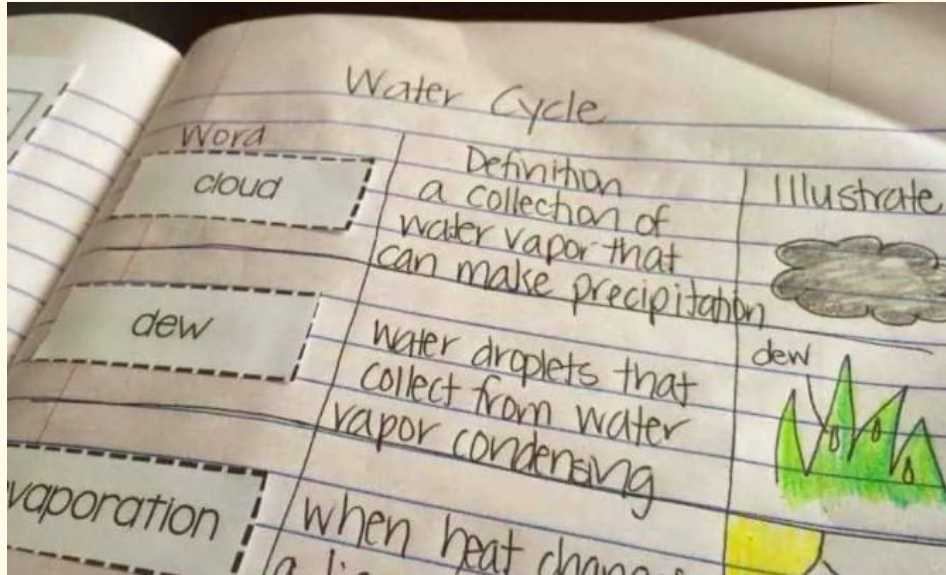 Water Cycle
Word
Definition
Illustrate
cloud
a collection of
water vapor that
can make precipitation
dew
water droplets that
collect from water
vapor condensing
dew
vaporation
when heat